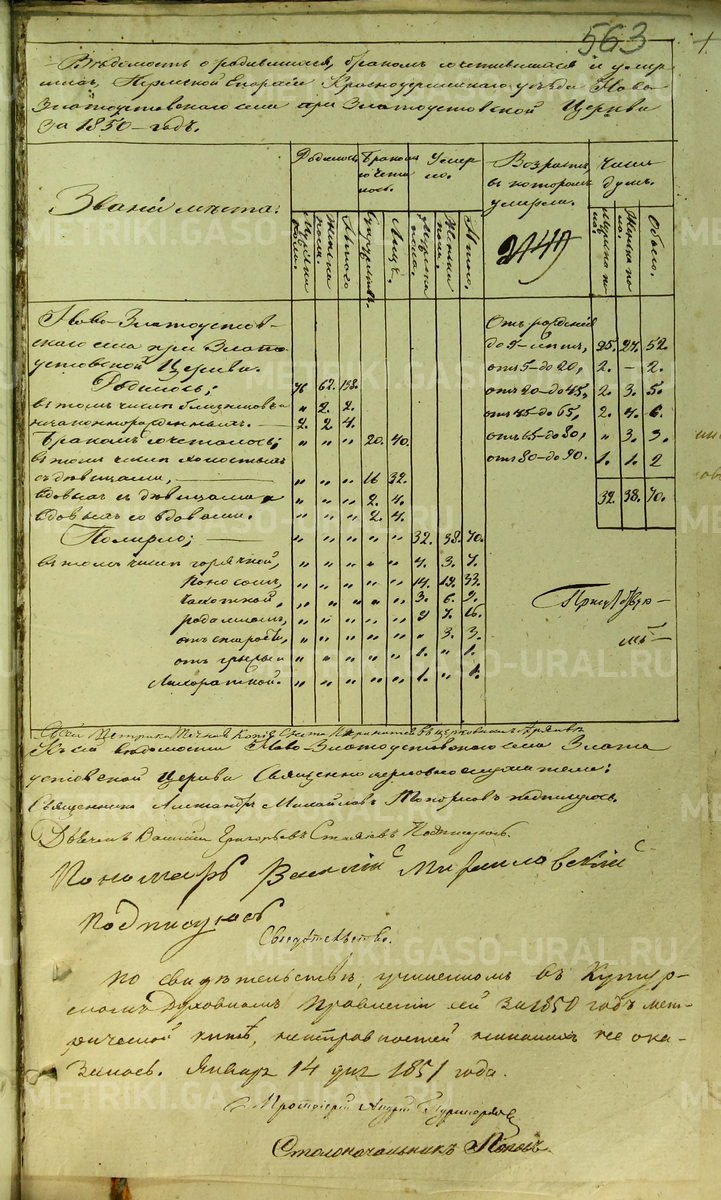 563
Вѣдомость о родившихся, бракомъ сочетавшихся и умер
шихъ, Пермской Епархіи Красноуфимскаго уѣзда Ново
Златоустовскаго села при Златоустовской Церкви
за 1850 годъ.
Званіе мѣста.
Родилось.
Бракомъ сочеталось.
Умерло.
Возрастъ, въ которомъ умерли.
Число душъ.
Мужеска пола. Женска пола. Итого. Супружествъ. Лицъ. Мужеска пола. Женска пола. Итого. Мужеска пола. Женска пола. Обоего.
Ново-Златоустов-
скаго села при Злато
устовской Церкви.
Родилось; 76 62. 138.
въ томъ числѣ близнецовъ " 2. 2.
незаконнорожденныхъ. 2. 2 4.
Бракомъ сочеталось; " " " 20. 40.
въ томъ числѣ холостыхъ
съ дѣвицами, " " " 16 32.
вдовыхъ съ дѣвицами " " " 2. 4.
вдовыхъ со вдовами. " " " 2. 4.
Померло; " " " " " 32. 38. 70.
въ томъ числѣ горячкой, " " " " " 4. 3. 7.
поносомъ, " " " " " 14. 19. 33.
чахоткой, " " " " " 3. 6. 9.
родимцемъ, " " " " " 9 7. 16.
отъ старости, " " " " " " 3. 3.
отъ грыжи " " " " " 1. " 1.
Лихорадкой. " " " " " 1. " 1.
Отъ рожденія
до 5-лѣтъ, 25. 27. 52.
отъ 5-до 20, 2. - 2.
отъ 20-до 45, 2. 3. 5.
отъ 45-до 65, 2. 4. 6.
отъ 65-до 80, " 3. 3.
отъ 80-до 90. 1. 1. 2
32. 38. 70.
Къ сей вѣдомости Ново-Златоустовскаго села Злато
устовской Церкви Священноцерковнослужители:
Священникъ Александръ Михайловъ Топорковъ подписуюсь.
Дьячекъ Василій Григорьевъ подписуюсь.
Пономарь Василій
подписуюсь
Свидѣтельство.
По свидѣтельствѣ, учиненномъ въ Кунгур-
скомъ Духовномъ Правленіи сей за 1850 годъ мет-
рической книгѣ, неисправностей никакихъ не ока-
залось. Январ 14 дня 1851 года.
Протоіерей Андрей
Столоначальникъ Поповъ
METRIKI.GASO-URAL.RU